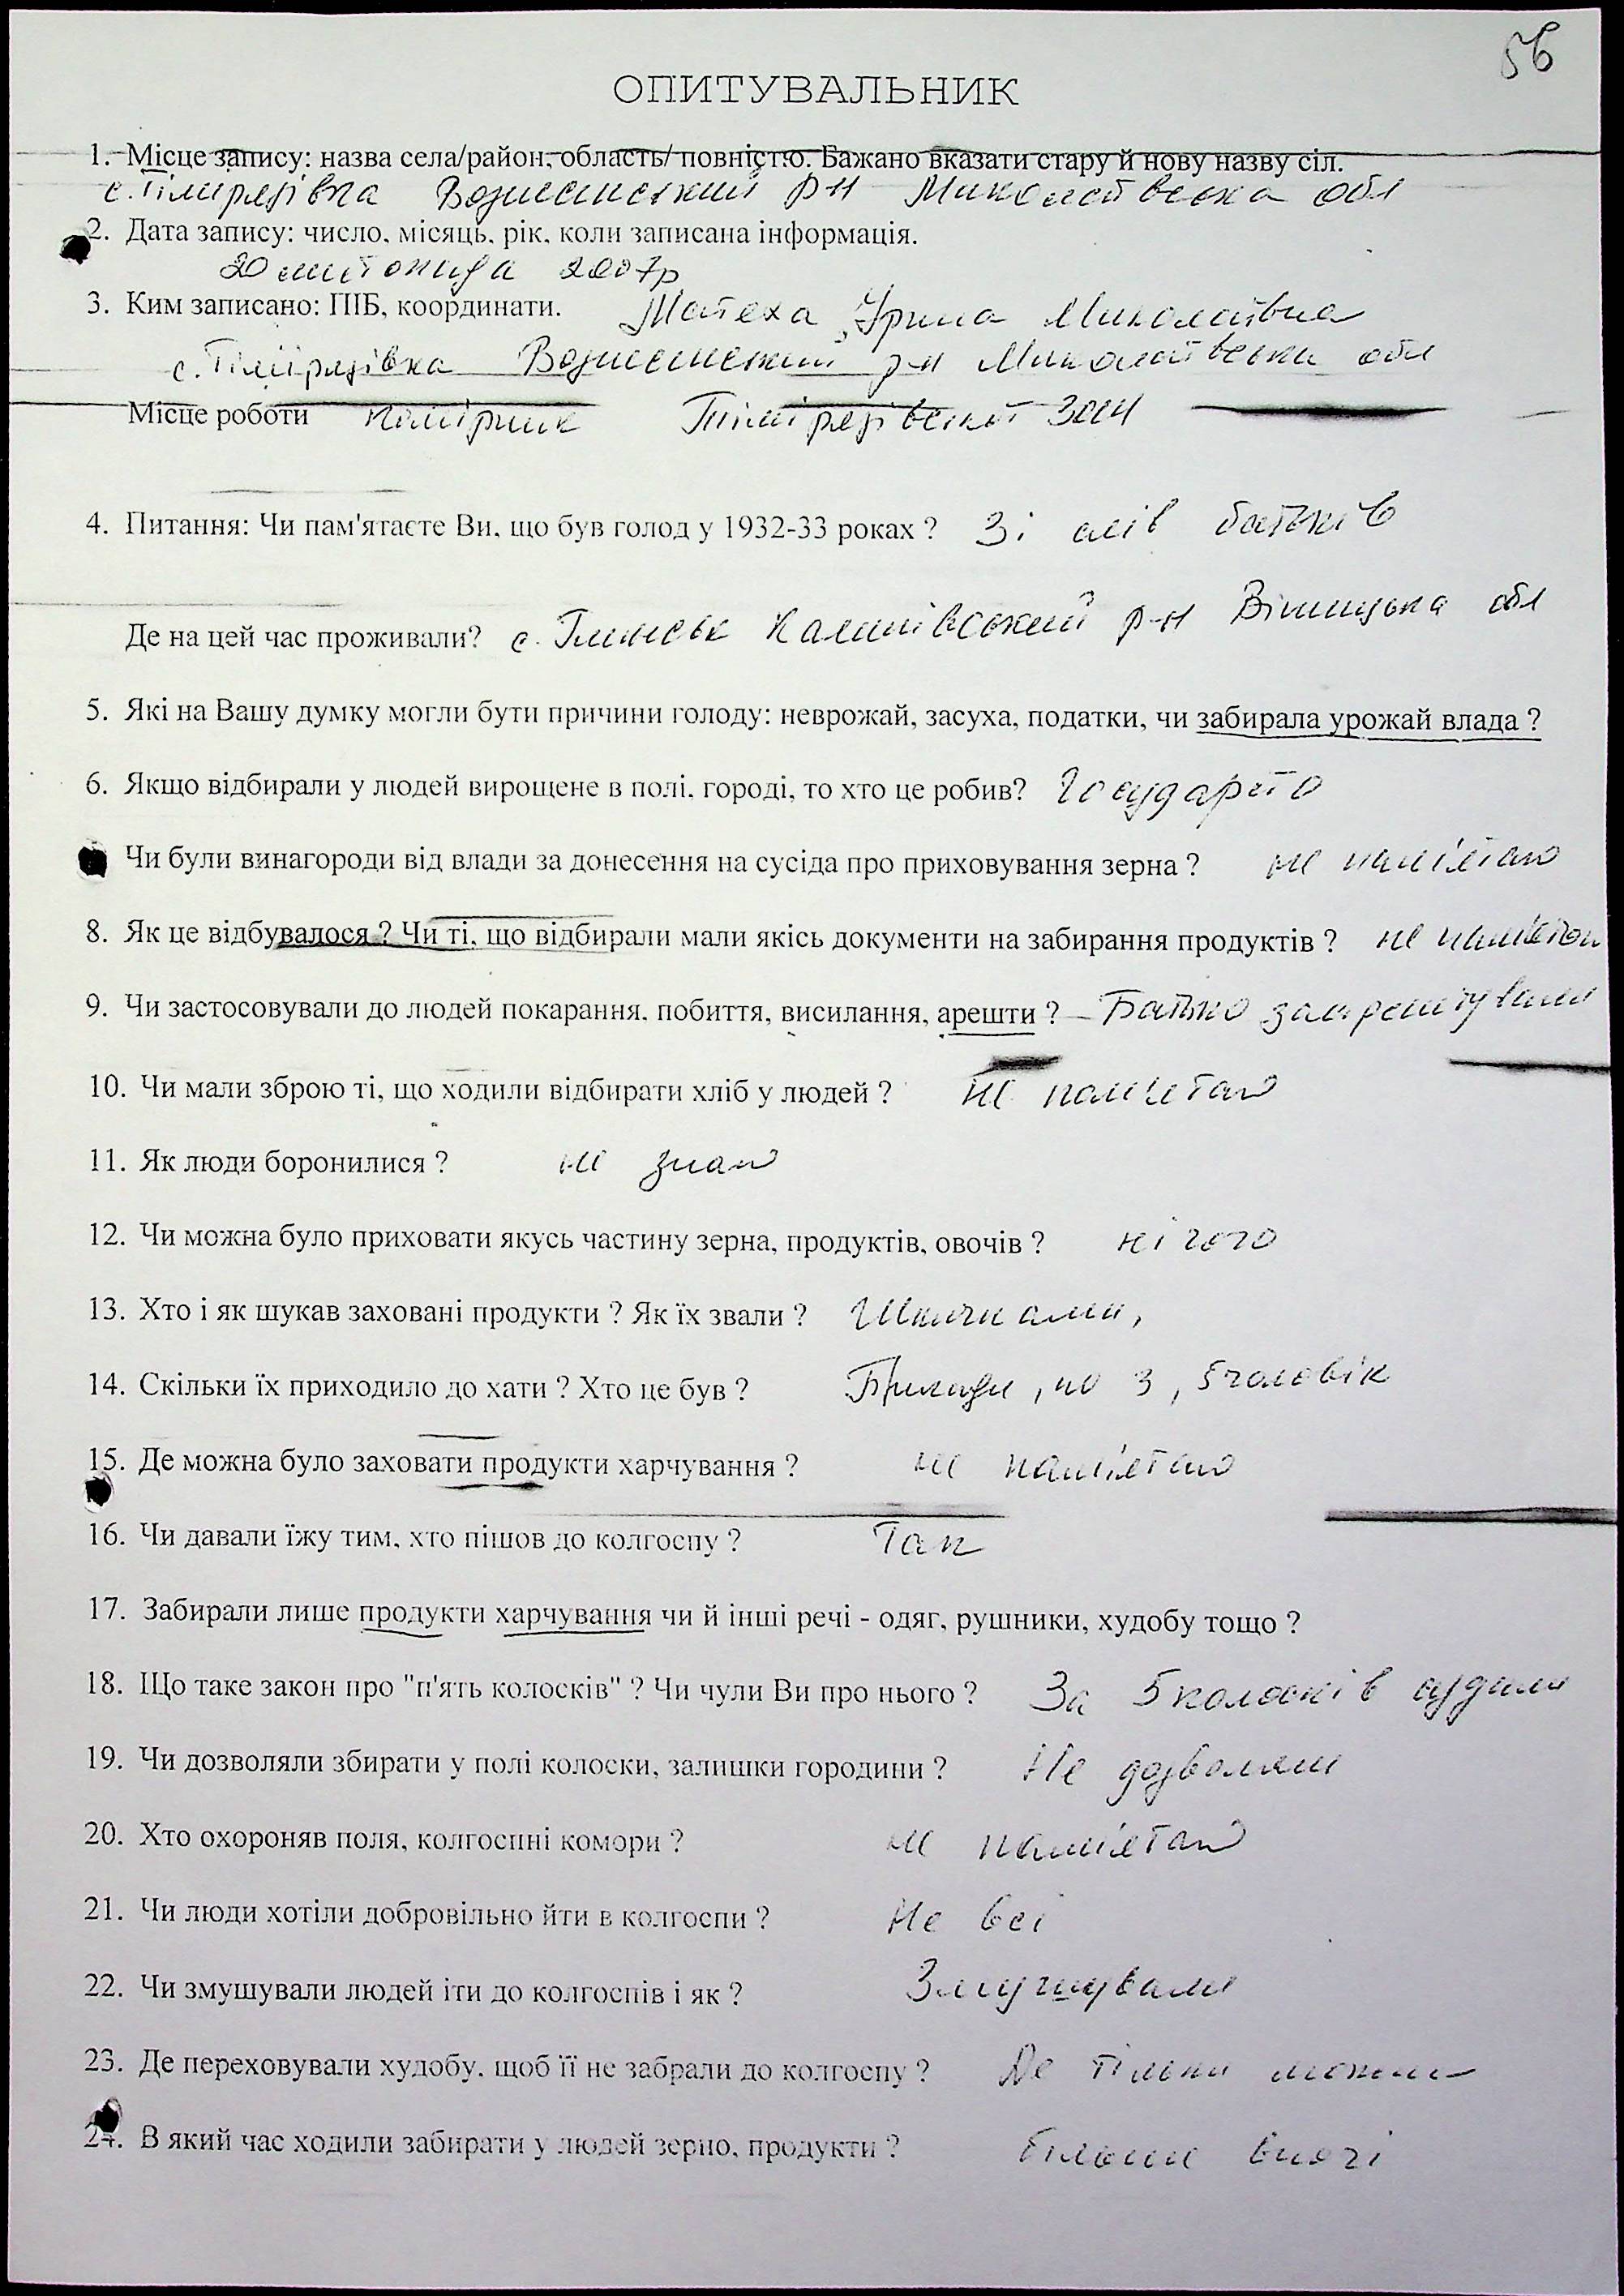 56
ОПИТУВАЛЬНИК
1. Місце запису: назва села/район, область/ повністю. Бажано вказати стару й нову назву сіл.
с. Тімірязівка Вознесенський р-н Миколаївська обл
2. Дата запису: число, місяць, рік, коли записана інформація.
20 листопада 2007р
3. Ким записано: ПІБ, координати. Матеха Ірина Миколаївна
с. Тімірязівка Вознесенський р-н Миколаївська обл
Місце роботи Тімірязівської ЗОШ
4. Питання: Чи пам'ятаєте Ви, що був голод у 1932-33 роках ? Зі слів батьків
Де на цей час проживали? с. Глинськ Калинівський р-н Вінницька обл
5. Які на Вашу думку могли бути причини голоду: неврожай, засуха, податки, чи забирала урожай влада ?
6. Якщо відбирали у людей вирощене в полі, городі, то хто це робив? Государство
Чи були винагороди від влади за донесення на сусіда про приховування зерна ? не пам'ятаю
8. Як це відбувалося ? Чи ті, що відбирали мали якісь документи на забирання продуктів ? не пам'ятаю
9. Чи застосовували до людей покарання, побиття, висилання, арешти ? – Батько заарештували
10. Чи мали зброю ті, що ходили відбирати хліб у людей ? не пам'ятаю
11. Як люди боронилися ? не знаю
12. Чи можна було приховати якусь частину зерна, продуктів, овочів ? нічого
13. Хто і як шукав заховані продукти ? Як їх звали ?
14. Скільки їх приходило до хати ? Хто це був ? Бригади, по 3, 5 чоловік
15. Де можна було заховати продукти харчування ? не пам'ятаю
16. Чи давали їжу тим, хто пішов до колгоспу ? Так
17. Забирали лише продукти харчування чи й інші речі - одяг, рушники, худобу тощо ?
18. Що таке закон про "п'ять колосків" ? Чи чули Ви про нього ? За 5 колосків судили
19. Чи дозволяли збирати у полі колоски, залишки городини ? Не дозволяли
20. Хто охороняв поля, колгоспні комори ? не пам'ятаю
21. Чи люди хотіли добровільно йти в колгоспи ? Не всі
22. Чи змушували людей іти до колгоспів і як ? Змушували
23. Де переховували худобу, щоб її не забрали до колгоспу ? Де тільки можна
24. В який час ходили забирати у людей зерно, продукти ? більше вночі